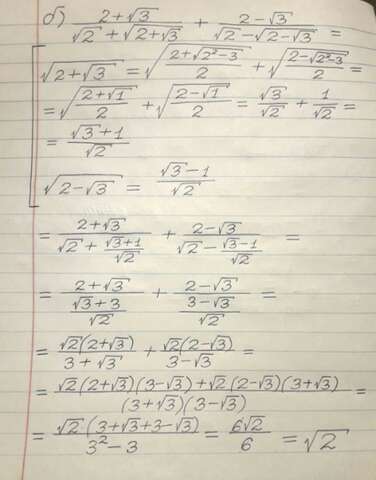 б) (2+√3)/(√2+√(2+√3)) + (2-√3)/(√2-√(2-√3)) =
√(2+√3) = √((2+√(2²-3))/2) + √((2-√(2²-3))/2) =
= √((2+√1)/2) + √((2-√1)/2) = √3/√2 + 1/√2 =
= (√3+1)/√2
√(2-√3) = (√3-1)/√2
= (2+√3)/(√2+(√3+1)/√2) + (2-√3)/(√2-(√3-1)/√2) =
= (2+√3)/((√3+3)/√2) + (2-√3)/((3-√3)/√2) =
= √2(2+√3)/(3+√3) + √2(2-√3)/(3-√3) =
= (√2(2+√3)(3-√3)+√2(2-√3)(3+√3))/((3+√3)(3-√3)) =
= √2(3+√3+3-√3)/(3²-3) = 6√2/6 = √2